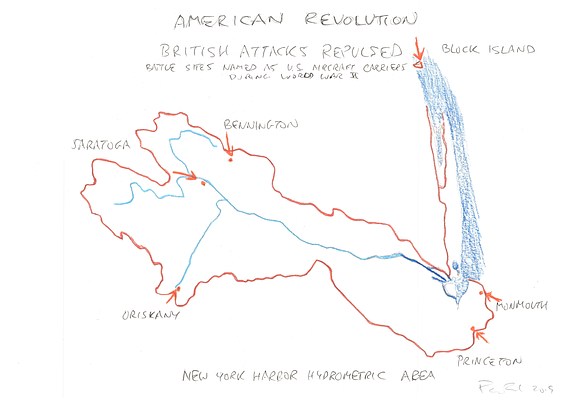 AMERICAN REVOLUTION
BRITISH ATTACKS REPULSED
BATTLE SITES NAMED AS U.S. AIRCRAFT CARRIERS
DURING WORLD WAR II
BLOCK ISLAND
BENNINGTON
SARATOGA
ORISKANY
MONMOUTH
PRINCETON
NEW YORK HARBOR HYDROMETRIC AREA